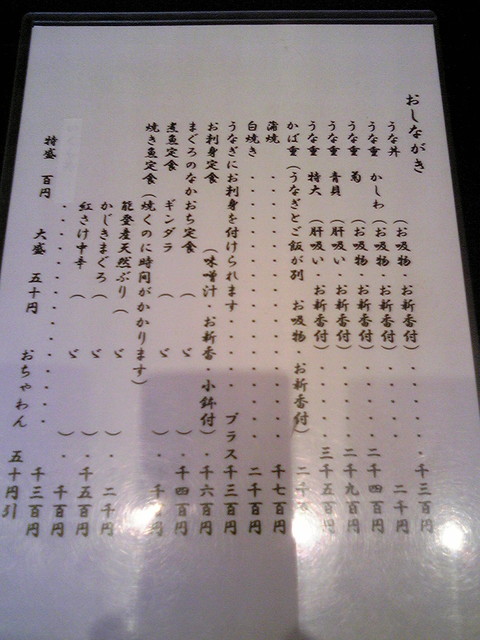 おしながき
うな丼 (お吸物・お新香付)・・・・千三百円
うな重 かしわ (お吸物・お新香付)・・・・二千円
うな重 菊 (お吸物・お新香付)・・・・二千四百円
うな重 青貝 (肝吸い・お新香付)・・・・二千九百円
うな重 特大 (肝吸い・お新香付)・・・・三千五百円
かば重 (うなぎとご飯が別 お吸物・お新香付) 二千
蒲焼・・・・千七百円
白焼き・・・・二千百円
うなぎにお刺身を付けられます・・・・プラス千三百円
お刺身定食 (味噌汁・お新香・小鉢付)・千六百円
まぐろのなかおち定食 ( 〃 )・千四百円
煮魚定食 ギンダラ ( 〃 )・千
焼き魚定食 (焼くのに時間がかかります)
能登産天然ぶり ( 〃 )・二千円
かじきまぐろ ( 〃 )・千五百円
紅さけ中辛 ( 〃 )・千百円
・・・・千三百円
特盛 百円 大盛 五十円 おちゃわん 五十円引